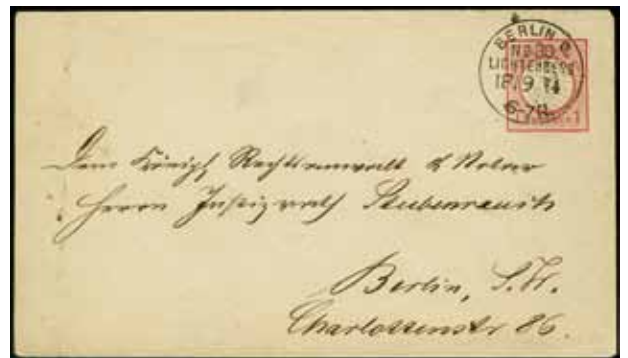 BERLIN, O.
LICHTENBERG
18/9 74
6-7N.
Dem Königl Rechtsanwalt & Notar
Herrn Justizrath Stubenrauch
Berlin, S.W.
Charlottenstr 86.